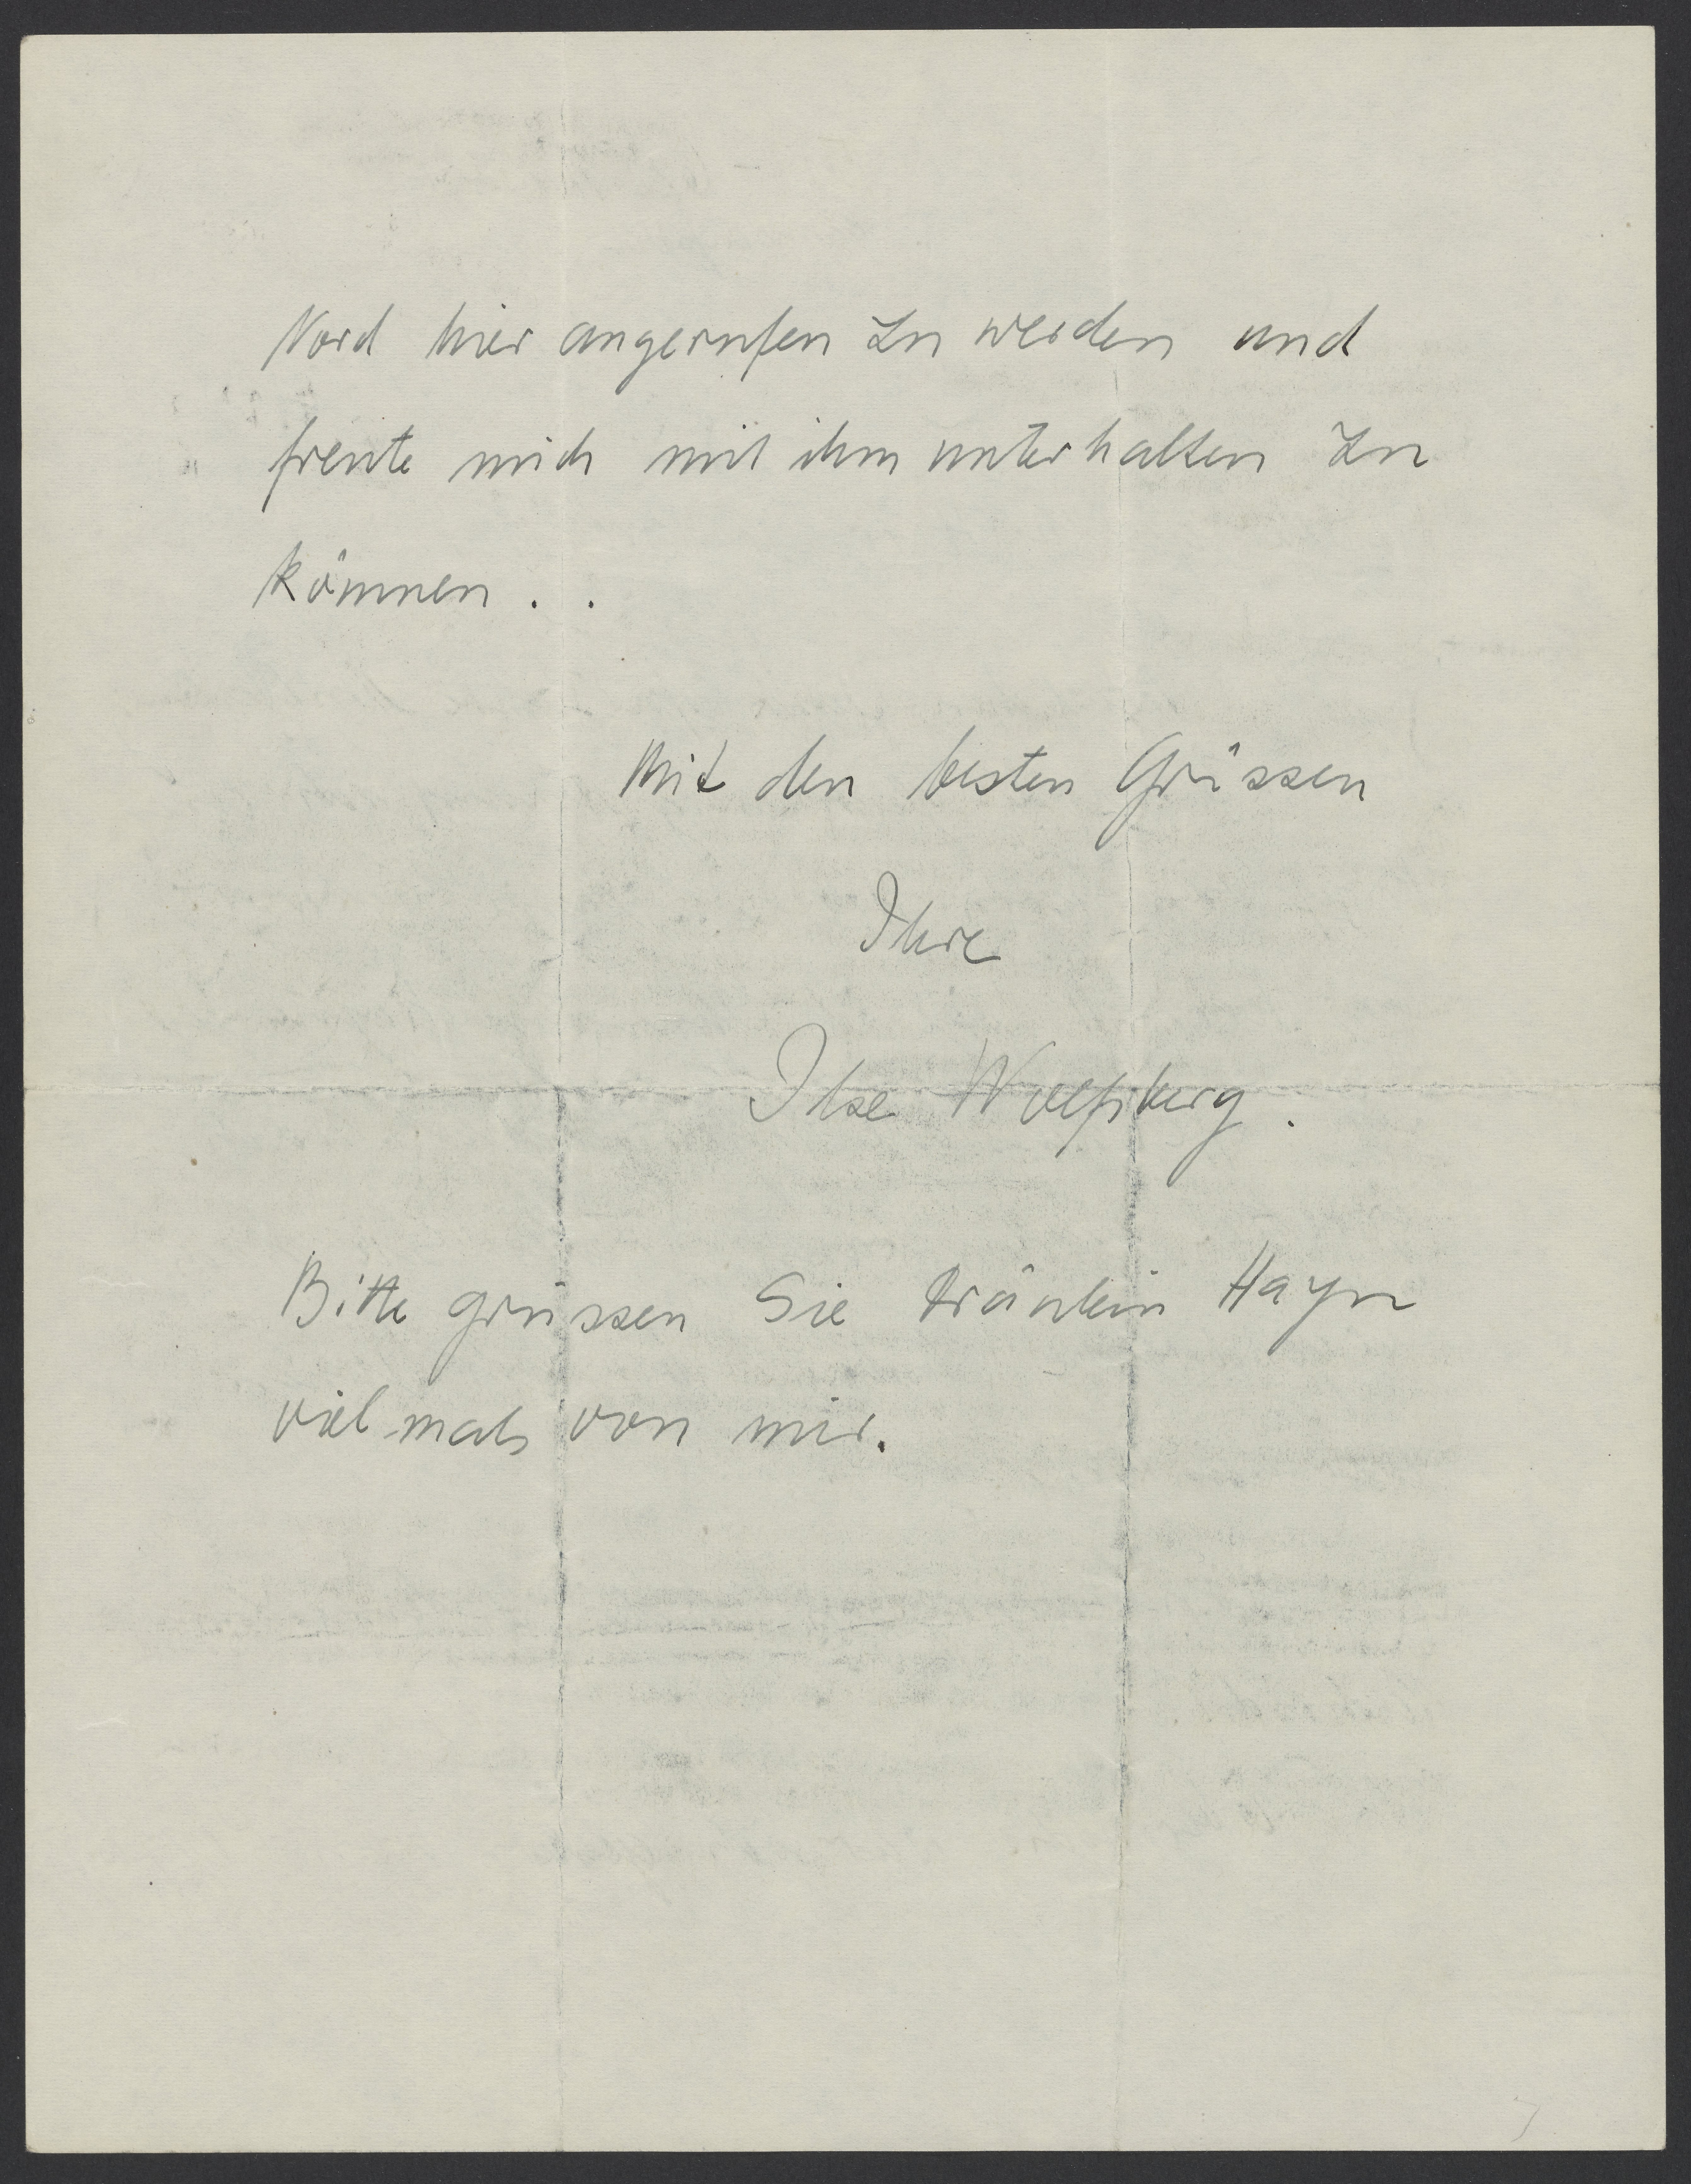 Nord hier angerufen zu werden und
freute mich mit ihm unterhalten zu
können . .
Mit den besten Grüssen
Ihre
Ilse Wolfsberg.
Bitte grüssen Sie Fräulein Hayn
vielmals von mir.